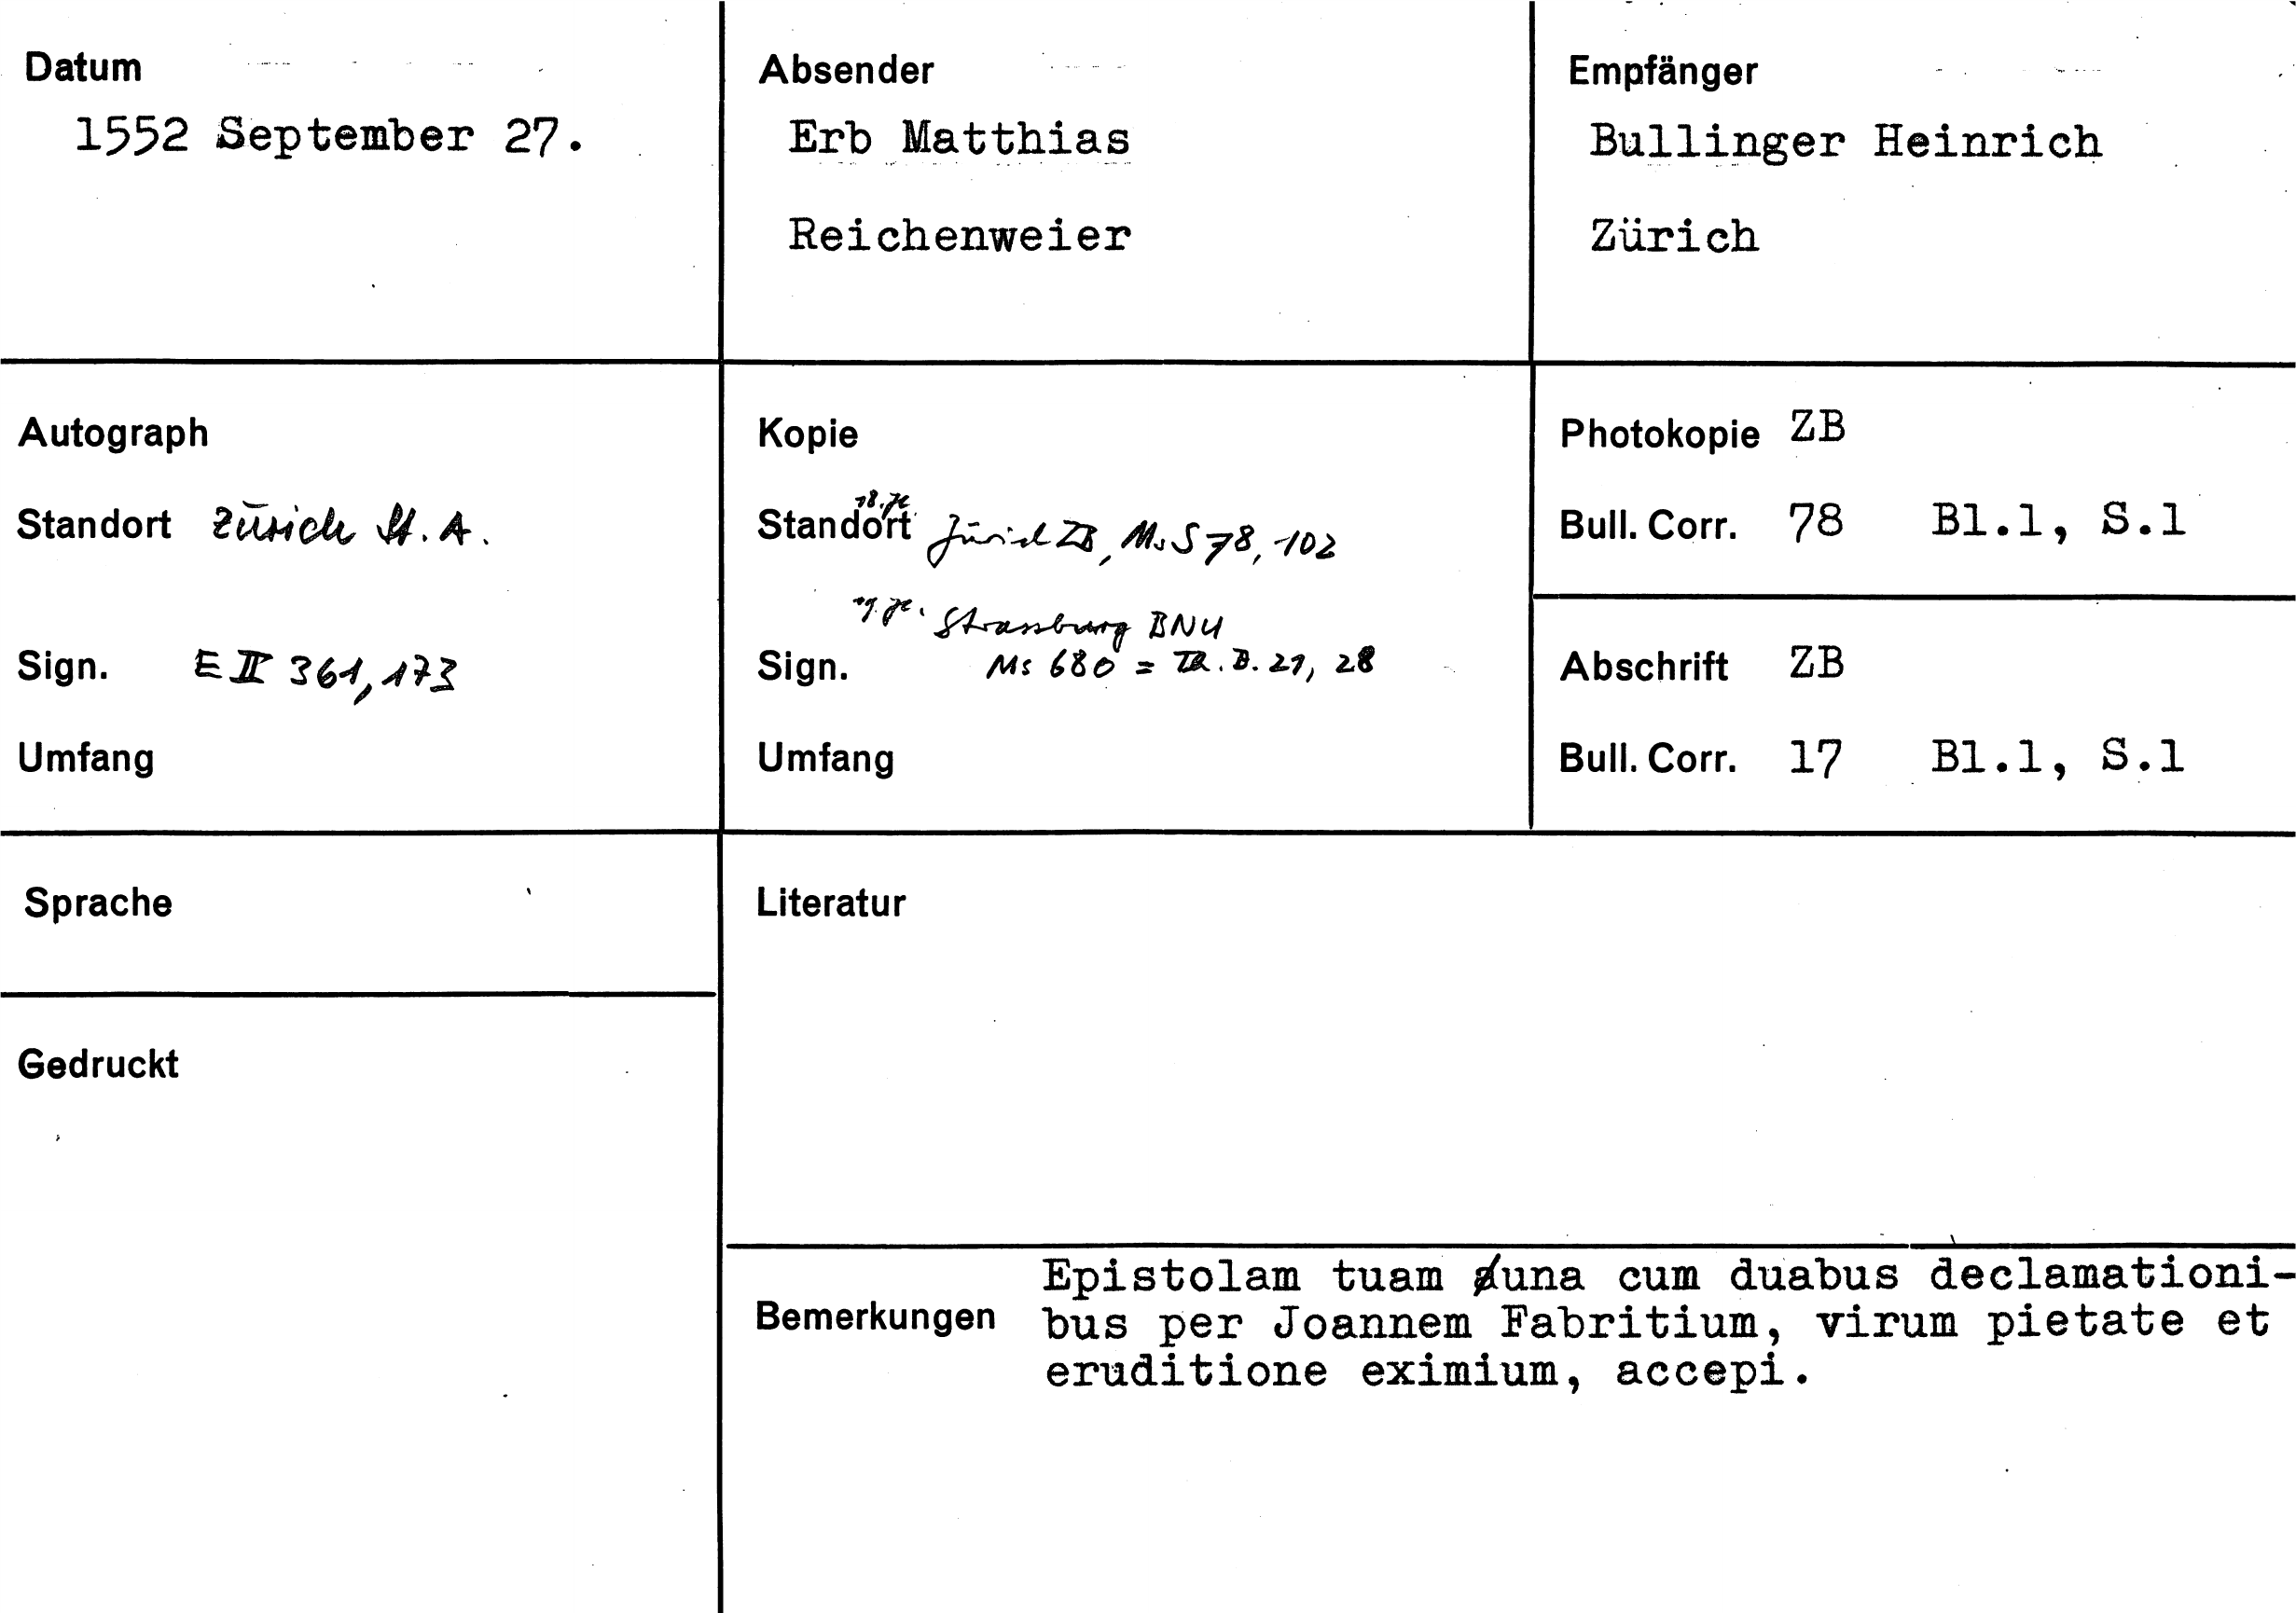 Datum
1552 September 27.
Absender
Erb Matthias
Reichenweier
Empfänger
Bullinger Heinrich
Zürich
Autograph
Standort Zürich St. A.
Sign. E II 361, 173
Umfang
Kopie
18. Jh.
Standort Zürich ZB, Ms S 78, 102
19. Jh. Strassburg BNU
Sign. Ms 680 = TR. B. 21, 28
Umfang
Photokopie ZB
Bull. Corr. 78 Bl.1, S.1
Abschrift ZB
Bull. Corr. 17 Bl.1, S.1
Sprache
Literatur
Gedruckt
Bemerkungen
Epistolam tuam una cum duabus declamationi-
bus per Joannem Fabritium, virum pietate et
eruditione eximium, accepi.